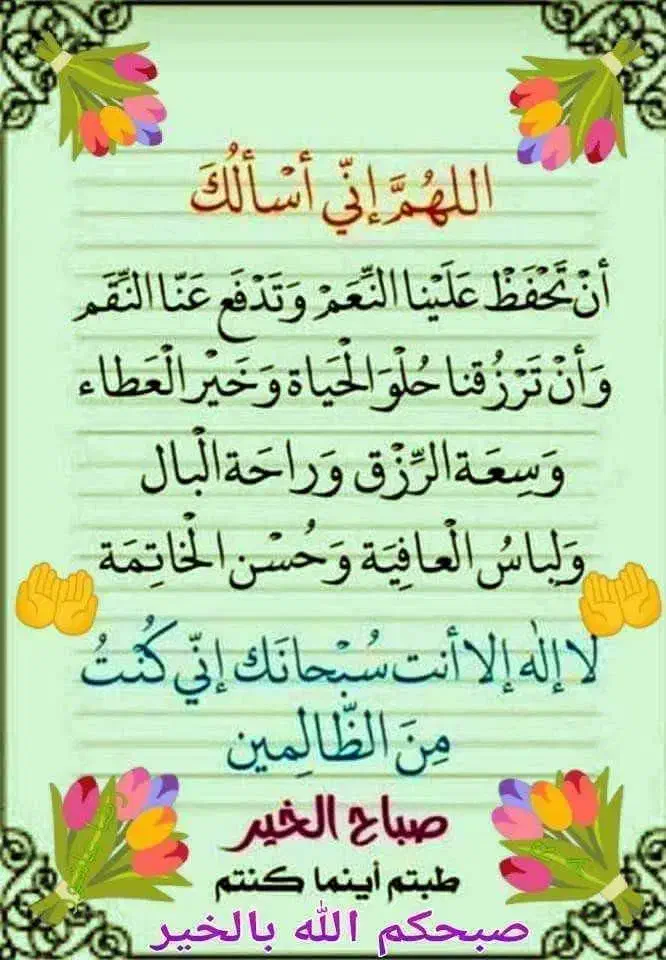 اللهُمَّ إنّي أسْألُكَ
أنْ تَحْفَظْ عَلَيْنا النِّعَمْ وَتَدْفَع عَنّا النِّقَم
وَأنْ تَرْزُقنا حُلْوَ الْحَياة وَخَيْر الْعَطاء
وَسِعَة الرِّزْق وَراحَة الْبال
وَلِباسُ الْعافِيَة وَحُسْن الْخاتِمَة
لا إلٰه إلا أنت سُبْحانَك إنّي كُنْتُ
مِنَ الظّالِمين
صباح الخير
طبتم أينما كنتم
صبحكم الله بالخير